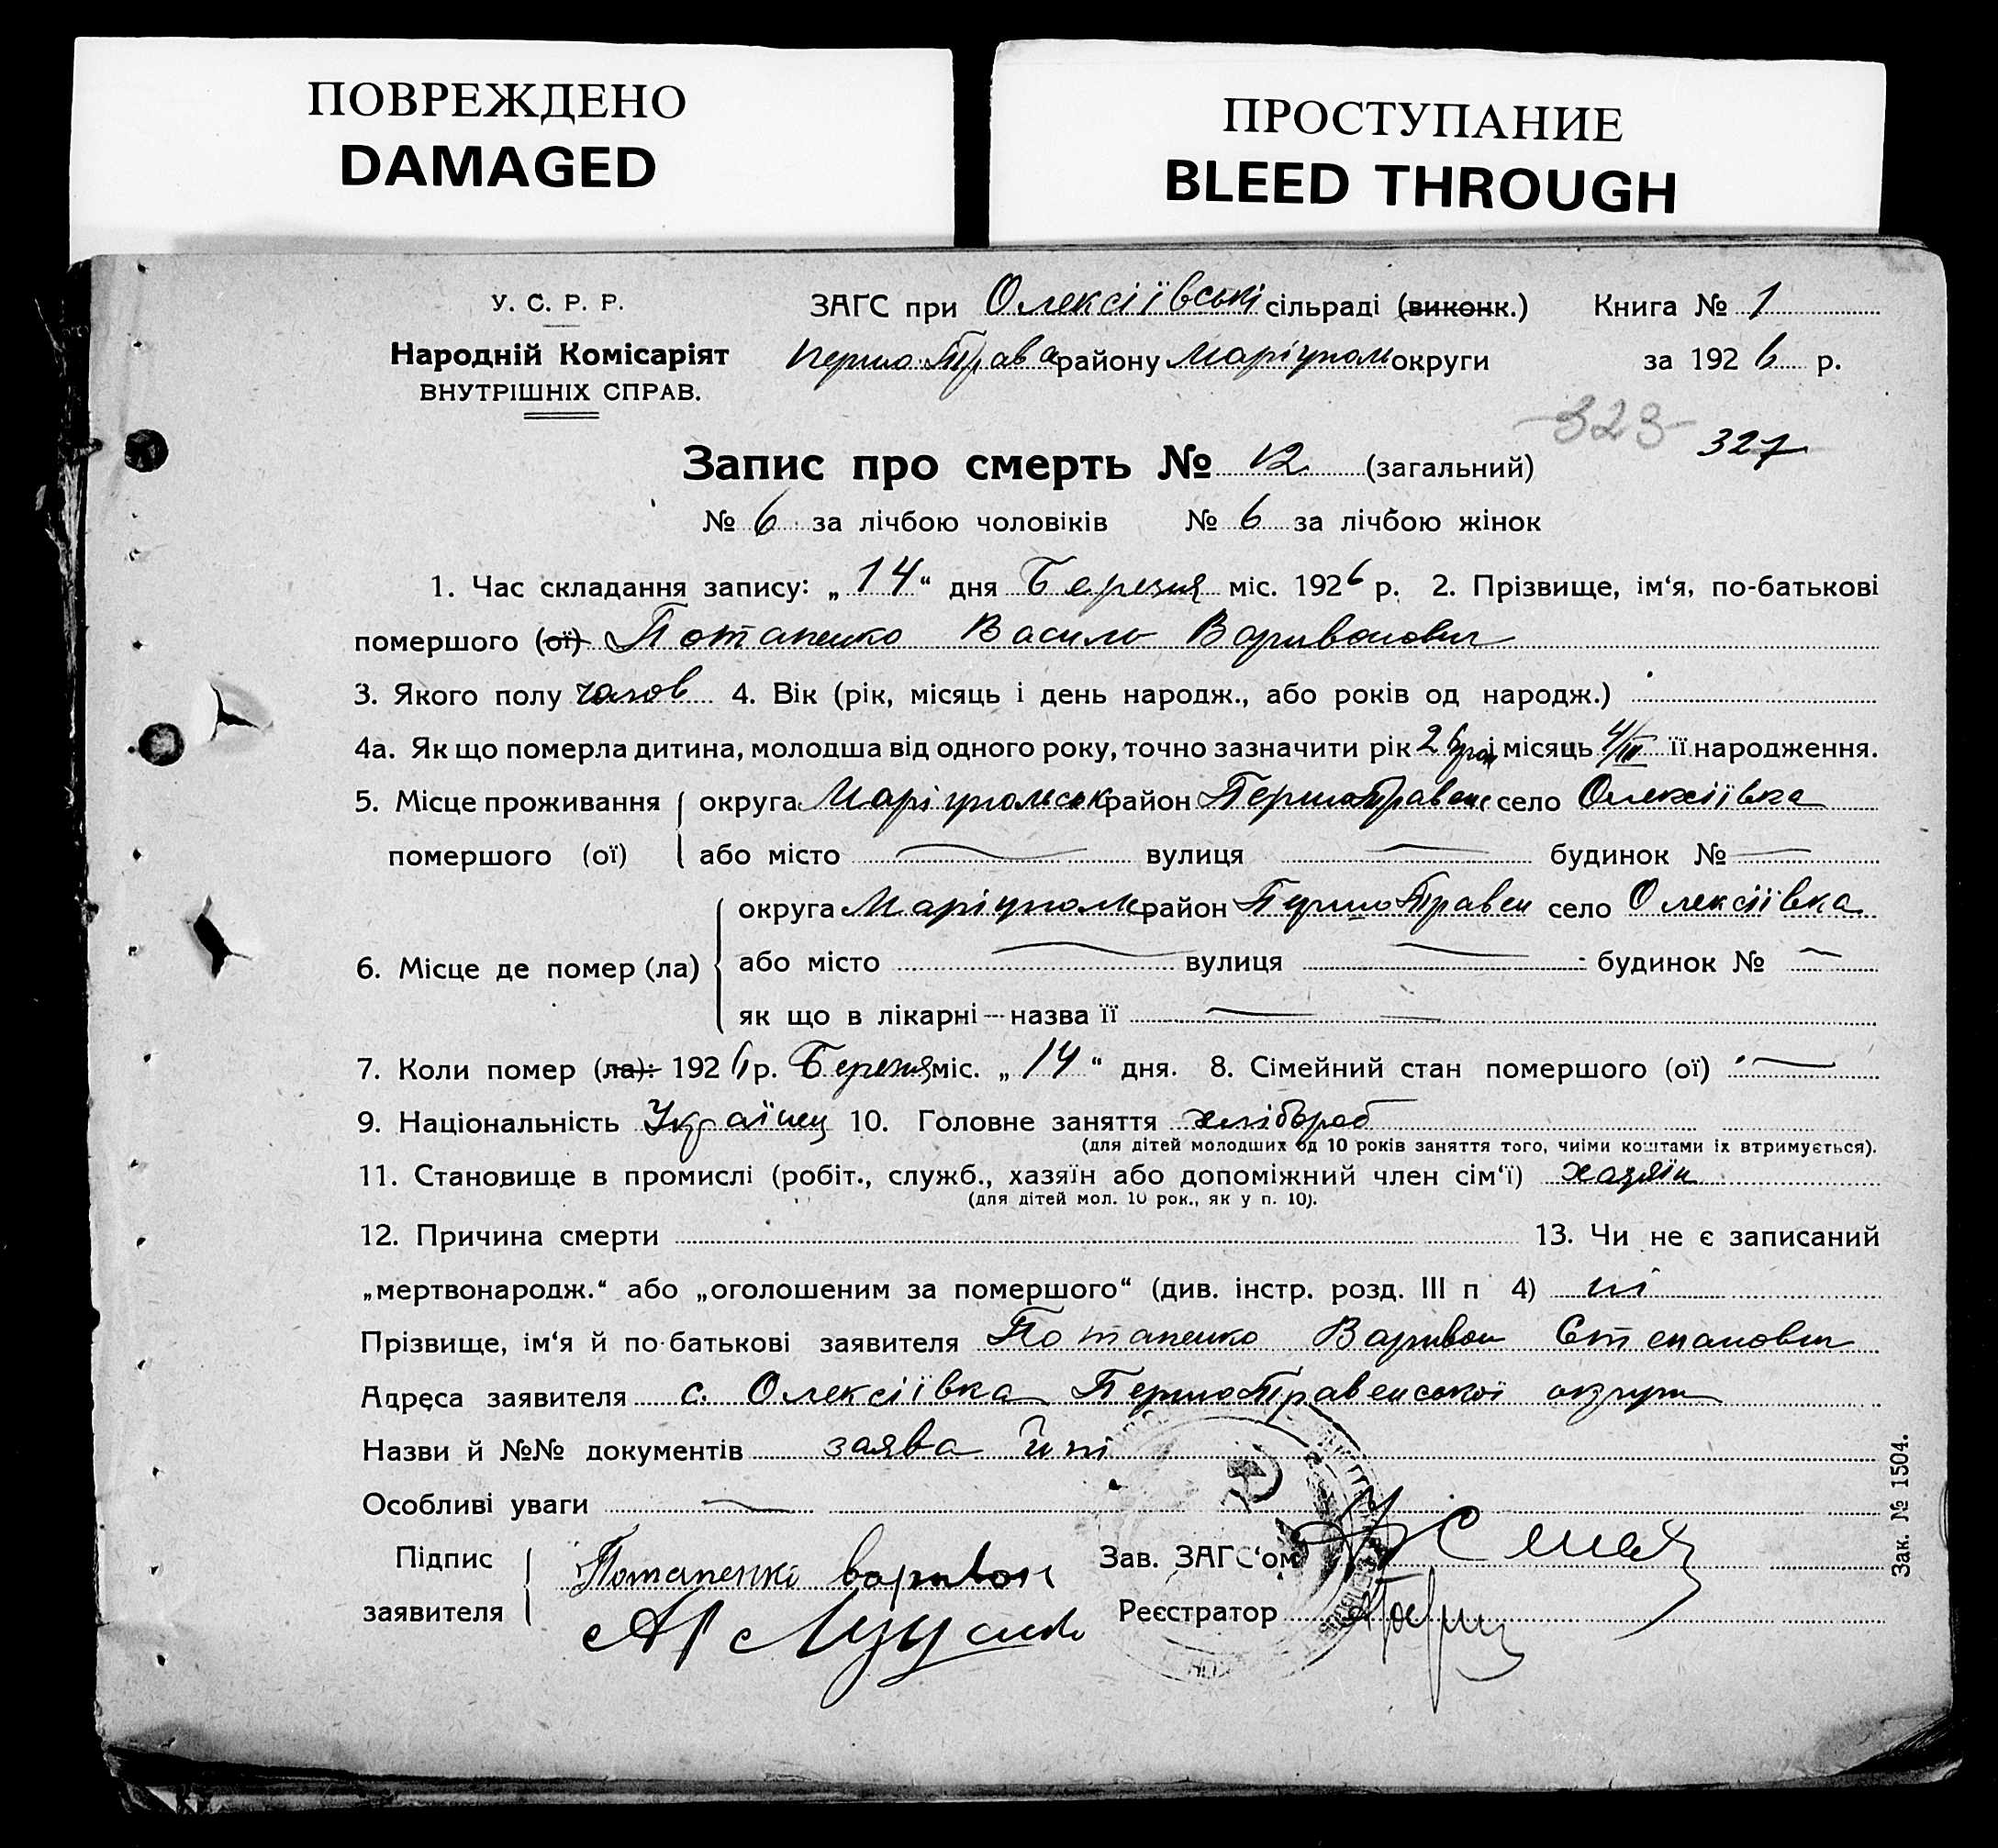 ПОВРЕЖДЕНО
DAMAGED
ПРОСТУПАНИЕ
BLEED THROUGH
У. С. Р. Р.
Народній Комісаріят
ВНУТРІШНІХ СПРАВ.
ЗАГС при Олексіївські сільраді (виконк.) Книга № 1
Першо-Права району Маріупол округи за 1926 р.
323 327
Запис про смерть № 12 (загальний)
№ 6 за лічбою чоловіків № 6 за лічбою жінок
1. Час складання запису: „14“ дня Березня міс. 1926 р. 2. Прізвище, ім‘я, по-батькові
помершого (ої) Потапенко Василь Варивонович
3. Якого полу чолов 4. Вік (рік, місяць і день народж., або років од народж.)
4а. Як що померла дитина, молодша від одного року, точно зазначити рік 26 місяць 4/III її народження.
5. Місце проживання округа Маріупольськ район ПершоПравенс село Олексіївка
помершого (ої) або місто — вулиця — будинок № —
округа Маріупол район ПершоПравен село Олексіївка
6. Місце де помер (ла) або місто — вулиця — будинок № —
як що в лікарні — назва її —
7. Коли помер (ла): 1926 р. Березня міс. „14“ дня. 8. Сімейний стан помершого (ої) —
9. Національність Українец 10. Головне заняття хлібороб
(для дітей молодших од 10 років заняття того, чиїми коштами їх втримується).
11. Становище в промислі (робіт., служб., хазяїн або допоміжний член сім‘ї) хазяїн
(для дітей мол. 10 рок., як у п. 10).
12. Причина смерти 13. Чи не є записаний
„мертвонародж.“ або „оголошеним за помершого“ (див. інстр. розд. III п 4) ні
Прізвище, ім‘я й по-батькові заявителя Потапенко Варивон Степанович
Адреса заявителя с. Олексіївка ПершоПравенської округи
Назви й №№ документів заява
Особливі уваги —
Підпис Потапенко варивон Зав. ЗАГС‘ом
заявителя Реєстратор
Зак. № 1504.